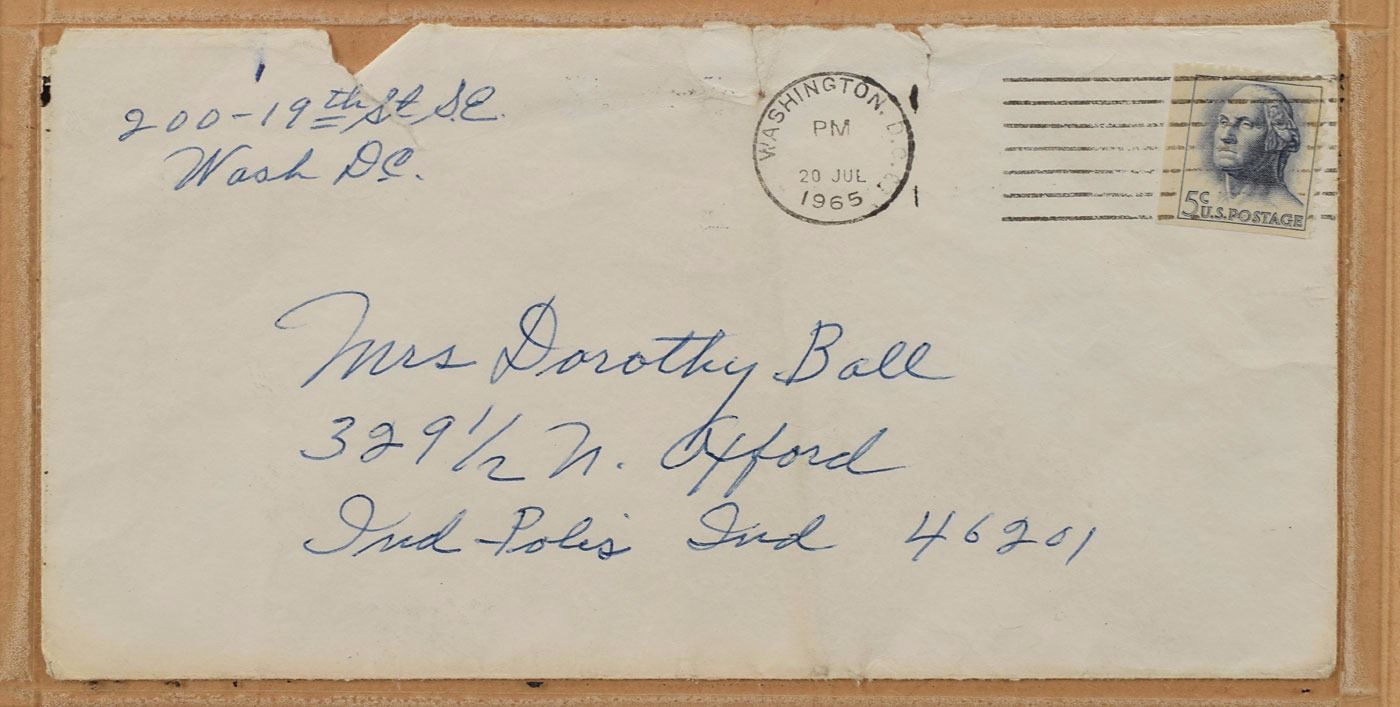 200-19th St S.E.
Wash DC.
WASHINGTON, D.C.
PM
20 JUL
1965
5c
U.S. POSTAGE
Mrs Dorothy Ball
329 1/2 N. Oxford
Ind-Polis Ind 46201